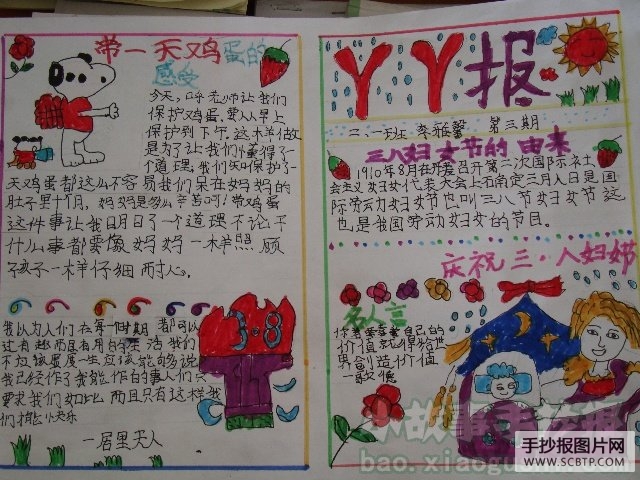 带一天鸡蛋的
感受
今天,呼老师让我们
保护鸡蛋,要从早上
保护到下午,这样做
是为了让我们懂得了一个
道理,我们
天鸡蛋都这么不容易我们呆在妈妈的
肚子里十个月,妈妈是多么辛苦啊!带鸡蛋
这件事让我明白了一个道理不论干
什么事都要像妈妈一样照顾
孩子一样仔细耐心。
我以为人们在每一个时期都可以
过有趣而且有用的生活我们
不应该虚度一生应该能够说
我已经作了我能作的事人们只
要求我们如此而且只有这样我
们才能小快乐
一居里夫人
3·8
丫丫报
二、一班 李雅馨 第三期
三八妇女节的由来
1910年8月在丹麦召开第二次国际社
会主义妇女代表大会上右南定三月八日是国
际劳动妇女妇女节也叫三八节妇女节这
也是我国劳动妇女的节目。
庆祝三·八妇女节
名人言
价值就得给世
界创造价值
一歌德
小故事手抄报
bao.xiaogushi.com
手抄报图片网
WWW.SCBTP.COM